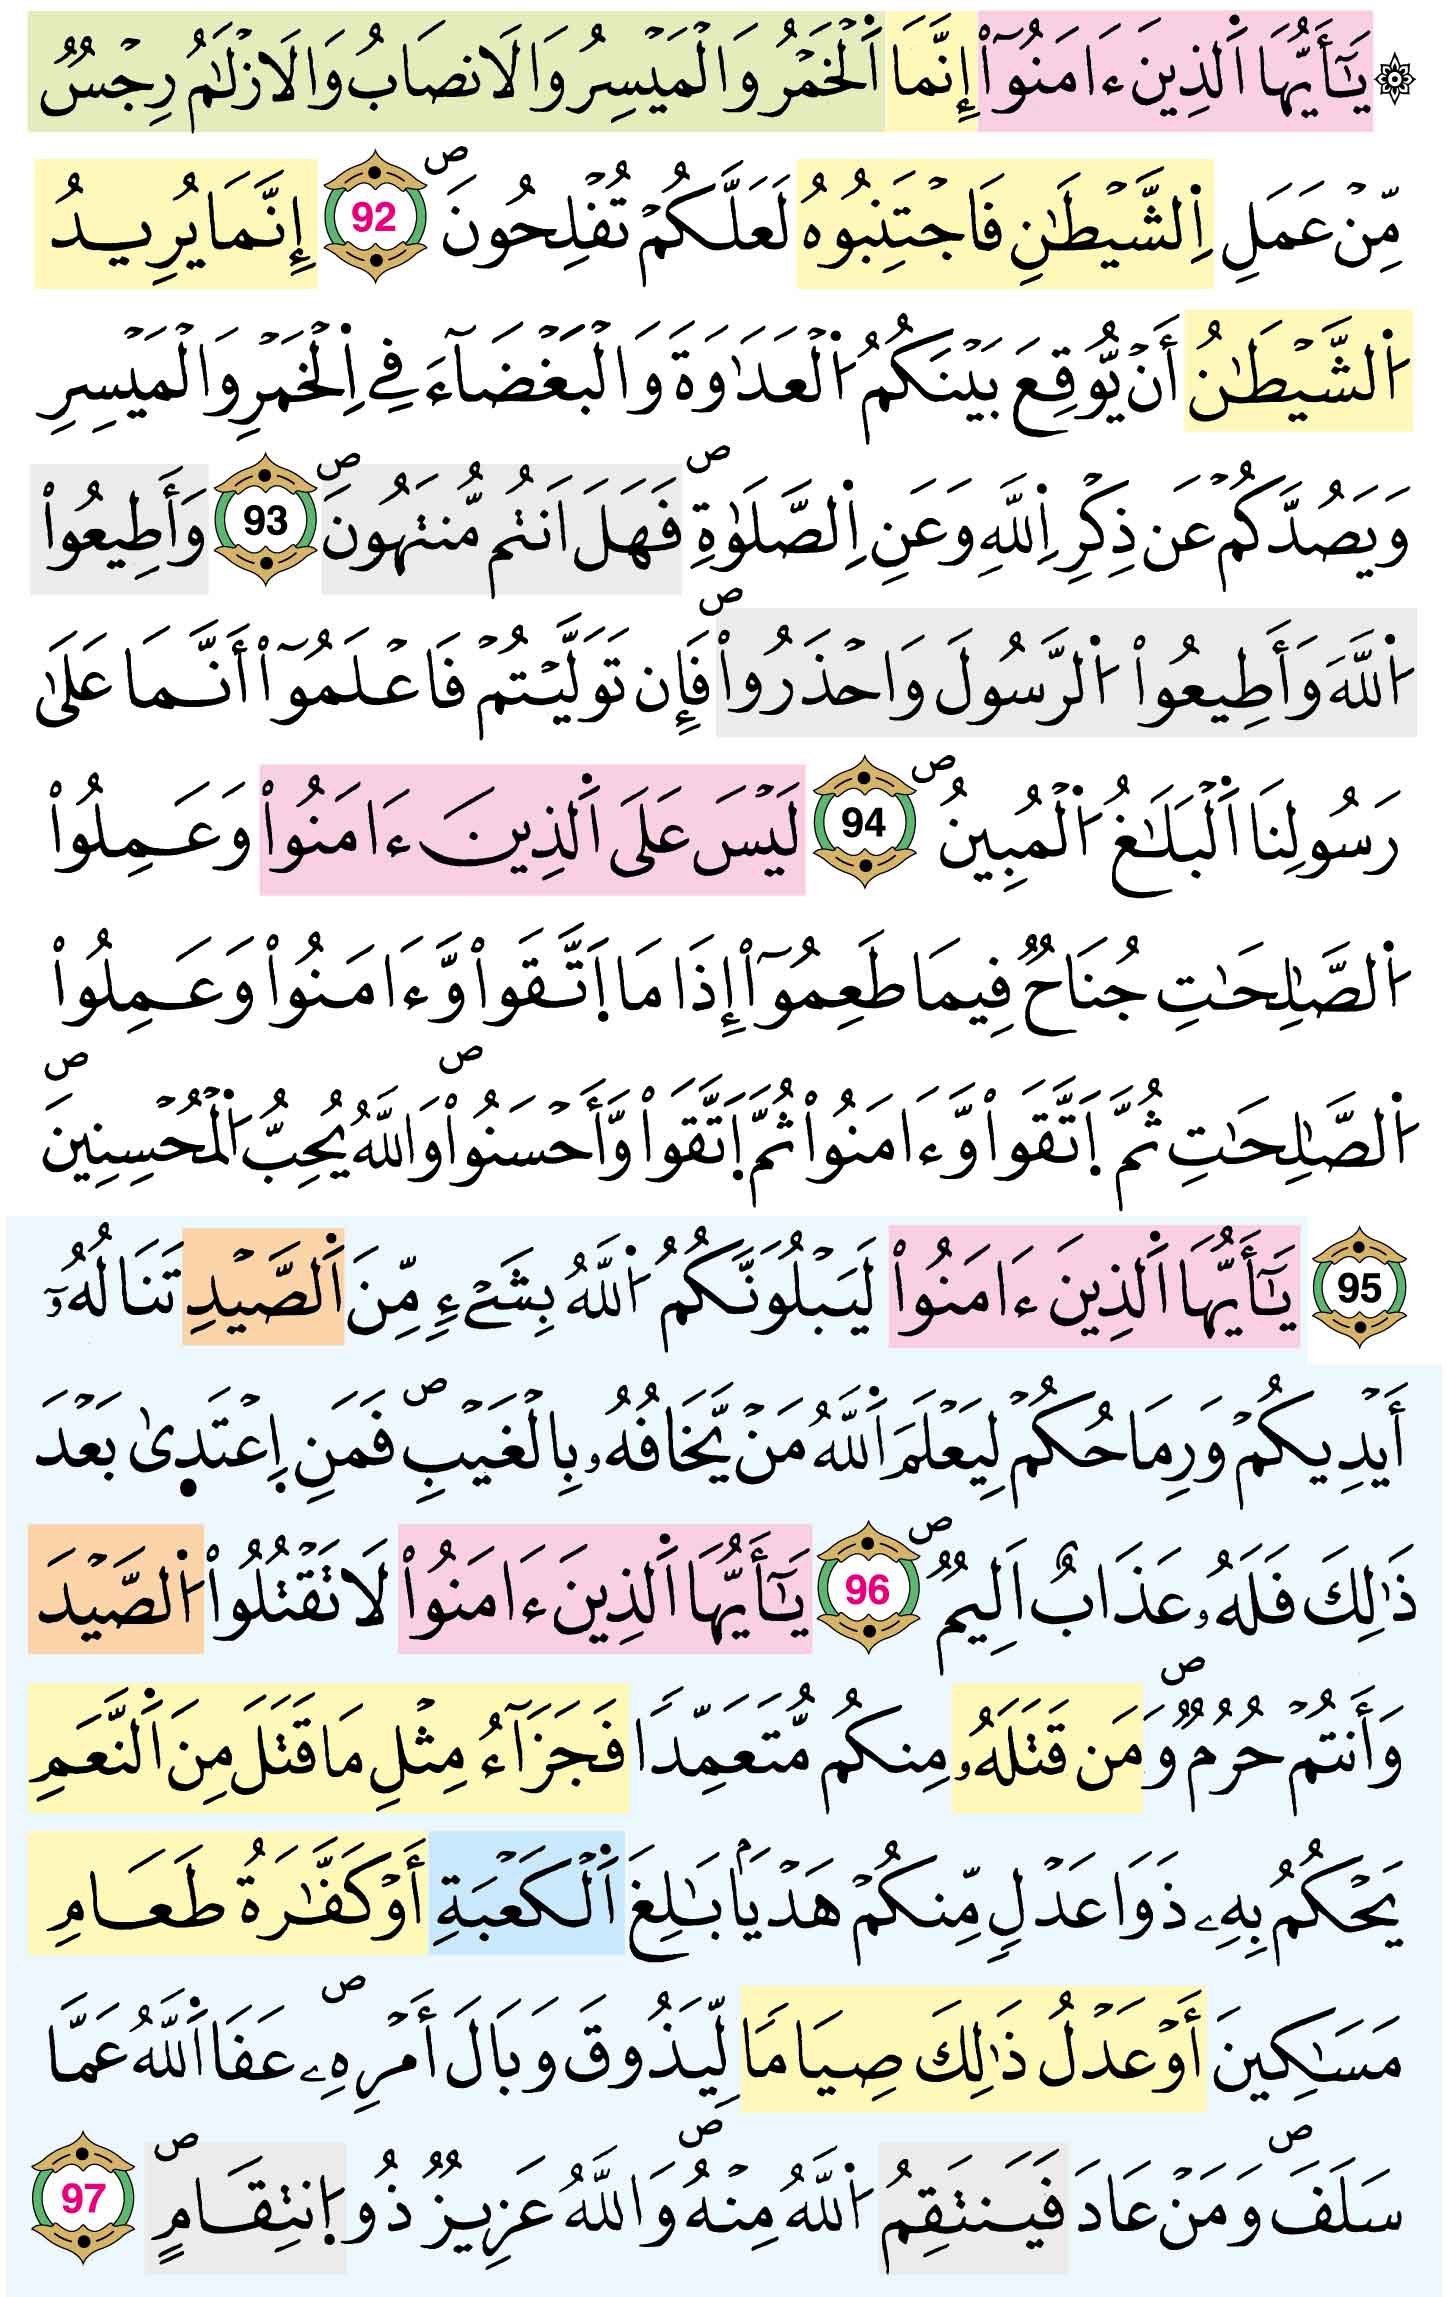 ۞ يَٰٓأَيُّهَا اَ۬لذِينَ ءَامَنُوٓاْ إِنَّمَا اَ۬لْخَمْرُ وَالْمَيْسِرُ وَالَانصَابُ وَالَازْلَٰمُ رِجْسٞ
مِّنْ عَمَلِ اِ۬لشَّيْطَٰنِ فَاجْتَنِبُوهُ لَعَلَّكُمْ تُفْلِحُونَۖ 92 إِنَّمَا يُرِيدُ
اُ۬لشَّيْطَٰنُ أَنْ يُّوقِعَ بَيْنَكُمُ اُ۬لْعَدَٰوَةَ وَالْبَغْضَآءَ فِے اِ۬لْخَمْرِ وَالْمَيْسِرِ
وَيَصُدَّكُمْ عَن ذِكْرِ اِ۬للَّهِ وَعَنِ اِ۬لصَّلَوٰةِۖ فَهَلَ اَنتُم مُّنتَهُونَۖ 93 وَأَطِيعُواْ
اُ۬للَّهَ وَأَطِيعُواْ اُ۬لرَّسُولَ وَاحْذَرُواْۖ فَإِن تَوَلَّيْتُمْ فَاعْلَمُوٓاْ أَنَّمَا عَلَىٰ
رَسُولِنَا اَ۬لْبَلَٰغُ اُ۬لْمُبِينُۖ 94 لَيْسَ عَلَى اَ۬لذِينَ ءَامَنُواْ وَعَمِلُواْ
اُ۬لصَّٰلِحَٰتِ جُنَاحٞ فِيمَا طَعِمُوٓاْ إِذَا مَا اَ۪تَّقَواْ وَّءَامَنُواْ وَعَمِلُواْ
اُ۬لصَّٰلِحَٰتِ ثُمَّ اَ۪تَّقَواْ وَّءَامَنُواْ ثُمَّ اَ۪تَّقَواْ وَّأَحْسَنُواْۖ وَاللَّهُ يُحِبُّ اُ۬لْمُحْسِنِينَۖ
95 يَٰٓأَيُّهَا اَ۬لذِينَ ءَامَنُواْ لَيَبْلُوَنَّكُمُ اُ۬للَّهُ بِشَےْءٖ مِّنَ اَ۬لصَّيْدِ تَنَالُهُۥٓ
أَيْدِيكُمْ وَرِمَاحُكُمْ لِيَعْلَمَ اَ۬للَّهُ مَنْ يَّخَافُهُۥ بِالْغَيْبِۖ فَمَنِ اِ۪عْتَد۪ىٰ بَعْدَ
ذَٰلِكَ فَلَهُۥ عَذَابٌ اَلِيمٞۖ 96 يَٰٓأَيُّهَا اَ۬لذِينَ ءَامَنُواْ لَا تَقْتُلُواْ اُ۬لصَّيْدَ
وَأَنتُمْ حُرُمٞۖ وَمَن قَتَلَهُۥ مِنكُم مُّتَعَمِّداٗ فَجَزَآءُ مِثْلِ مَا قَتَلَ مِنَ اَ۬لنَّعَمِ
يَحْكُمُ بِهِۦ ذَوَا عَدْلٖ مِّنكُمْ هَدْيَۢا بَٰلِغَ اَ۬لْكَعْبَةِ أَوْ كَفَّٰرَةُ طَعَامِ
مَسَٰكِينَ أَوْ عَدْلُ ذَٰلِكَ صِيَاماٗ لِّيَذُوقَ وَبَالَ أَمْرِهِۦۖ عَفَا اَ۬للَّهُ عَمَّا
سَلَفَۖ وَمَنْ عَادَ فَيَنتَقِمُ اُ۬للَّهُ مِنْهُۖ وَاللَّهُ عَزِيزٞ ذُو اُ۪نتِقَامٍۖ 97